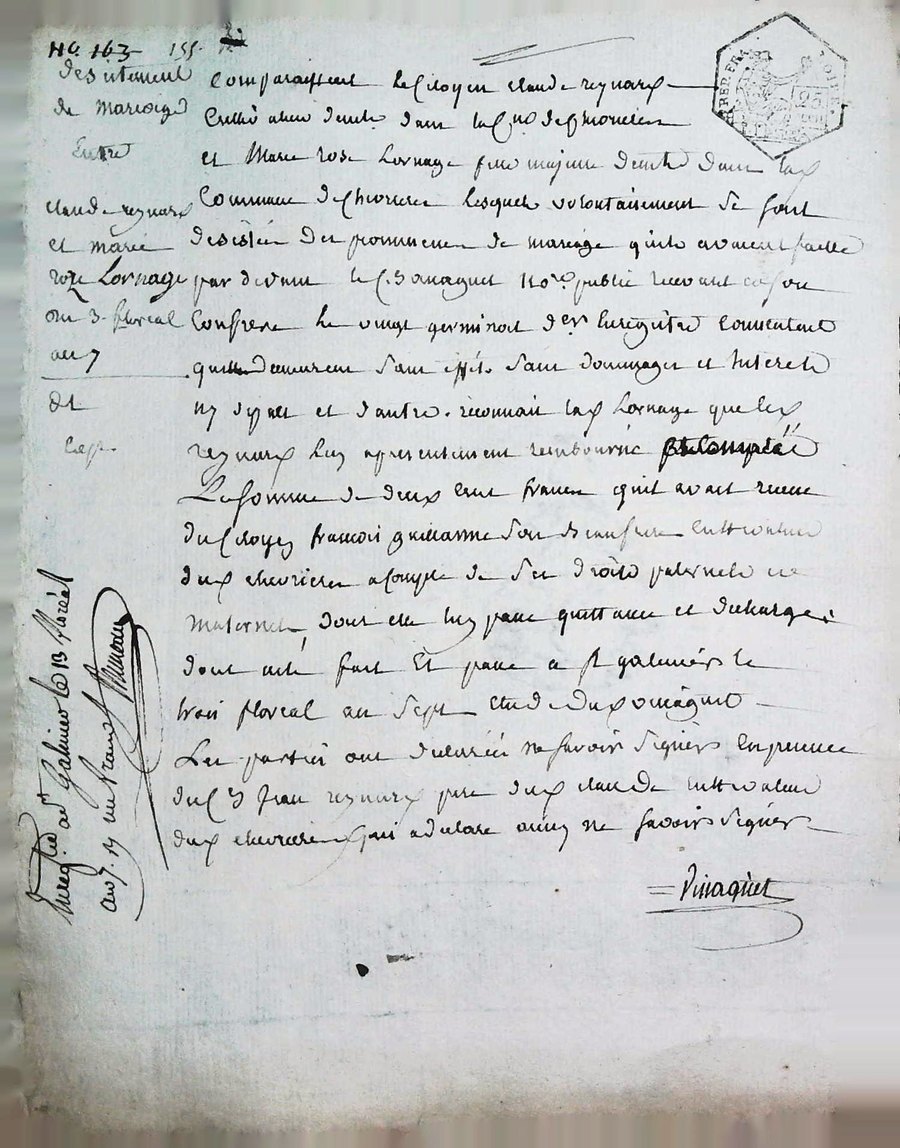 No. 163 155
desistement
de mariage
Entre
claude reynard
et marie
roze Lornage
du 3. floreal
an 7
dt
Comparaissent le Citoyen claude reynard
Cultivateur demt dans la Cne de
et Marie rose Lornage fille majeure demte dans lad
Commune de Chevrieres lesquels volontairement se sont
desistés des promesses de mariage quils avoient faitte
par devant le C. not.re public recevant
Confrere le vingt germinal der Enregistré consentent
quelles demeurent sans effets sans dommages et Interets
ny depens et d'autre. reconnait lad Lornage que led
reynard luy a presentement remboursé
La somme de deux cent francs quil avait recue
du Citoyen francois guillaume son Beaufrere Cultivateur
dud chevrieres a compte de ses droits paternels et
maternels, dont elle luy passe quittance et decharge.
dont acte fait Et passé a st galmier le
trois floreal an sept Etude dud vinagnet
Les parties ont declarées ne savoir signer En presence
du C. Jean reynard pere dud claude Cultivateur
dud chevrieres qui a declaré aussy ne savoir signer
Vinagnet
Enreg.tré a St Galmier le 13 floréal
an 7. un franc